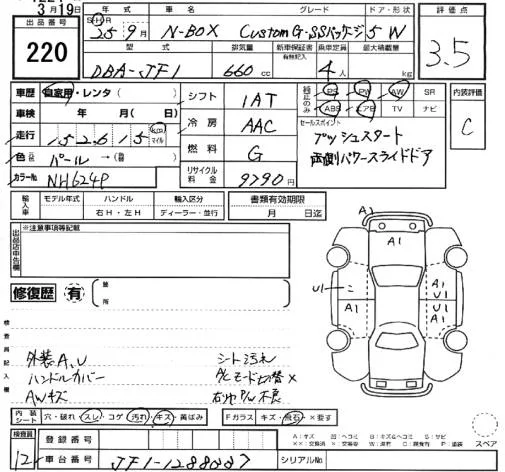 3月19日
出品番号
220
年式
車名
グレード
ドア・形状
S・H・R
25年9月 N-BOX Custom G・SSパッケージ 5W
型式
排気量
新車保証書
有無記入
乗車定員
最大積載量
DBA-JF1 660cc 4人 kg
評価点
3.5
車歴 自家用・レンタ( )
車検 年 月( 日)
走行 152,615 km マイル
色 パール →
カラーNo NH624P
シフト 1AT
冷房 AAC
燃料 G
リサイクル料金 9790円
純正のみ
PS PW AW SR
ABS エアB TV ナビ
セールスポイント
プッシュスタート
両側パワースライドドア
内装評価
C
輸入車
モデル年式
ハンドル
右H・左H
輸入区分
ディーラー・並行
書類有効期限
月 日迄
出品店申告欄
※注意事項等記載
修復歴 有
箇所
検査員記入欄
外装A,U
ハンドルカバー
AWキズ
シート汚れ
A/Cモード切替×
右ゆP/W不良
A1
A1
U1
A1
U1
U1
A1
A1
内装シート 穴・破れ・スレ・コゲ・汚れ・キズ・黄ばみ
Fガラス キズ・飛石・×要す
スペア
検査員
12
登録番号
車台番号 JF1-1288087
シリアルNo